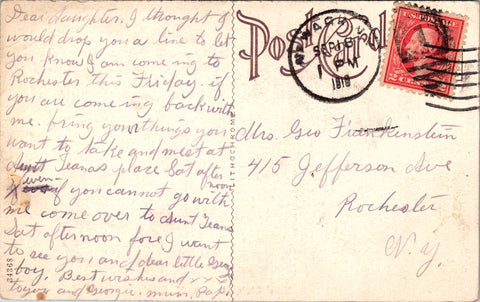 Dear daughter. I thought I
would drop you a line to let
you know I am comeing to
Rochester this Friday. if
you are comeing back with
me. bring your things you
want to take and meet at
aunt Jeanas place Sat after
noon
even
if you cannot go with
me come over to Aunt Jeans
Sat afternoon fore I want
to see you and dear little
boy. Best wishes and xxx
to you and Georgie. mum, Pa
34368
LITHOCHROME
Post Card
NEWARK
SEP 18
1 PM
1918
U.S. POSTAGE
2 CENTS 2
Mrs. Geo Frankenstein
415 Jefferson Ave
Rochester
N.Y.